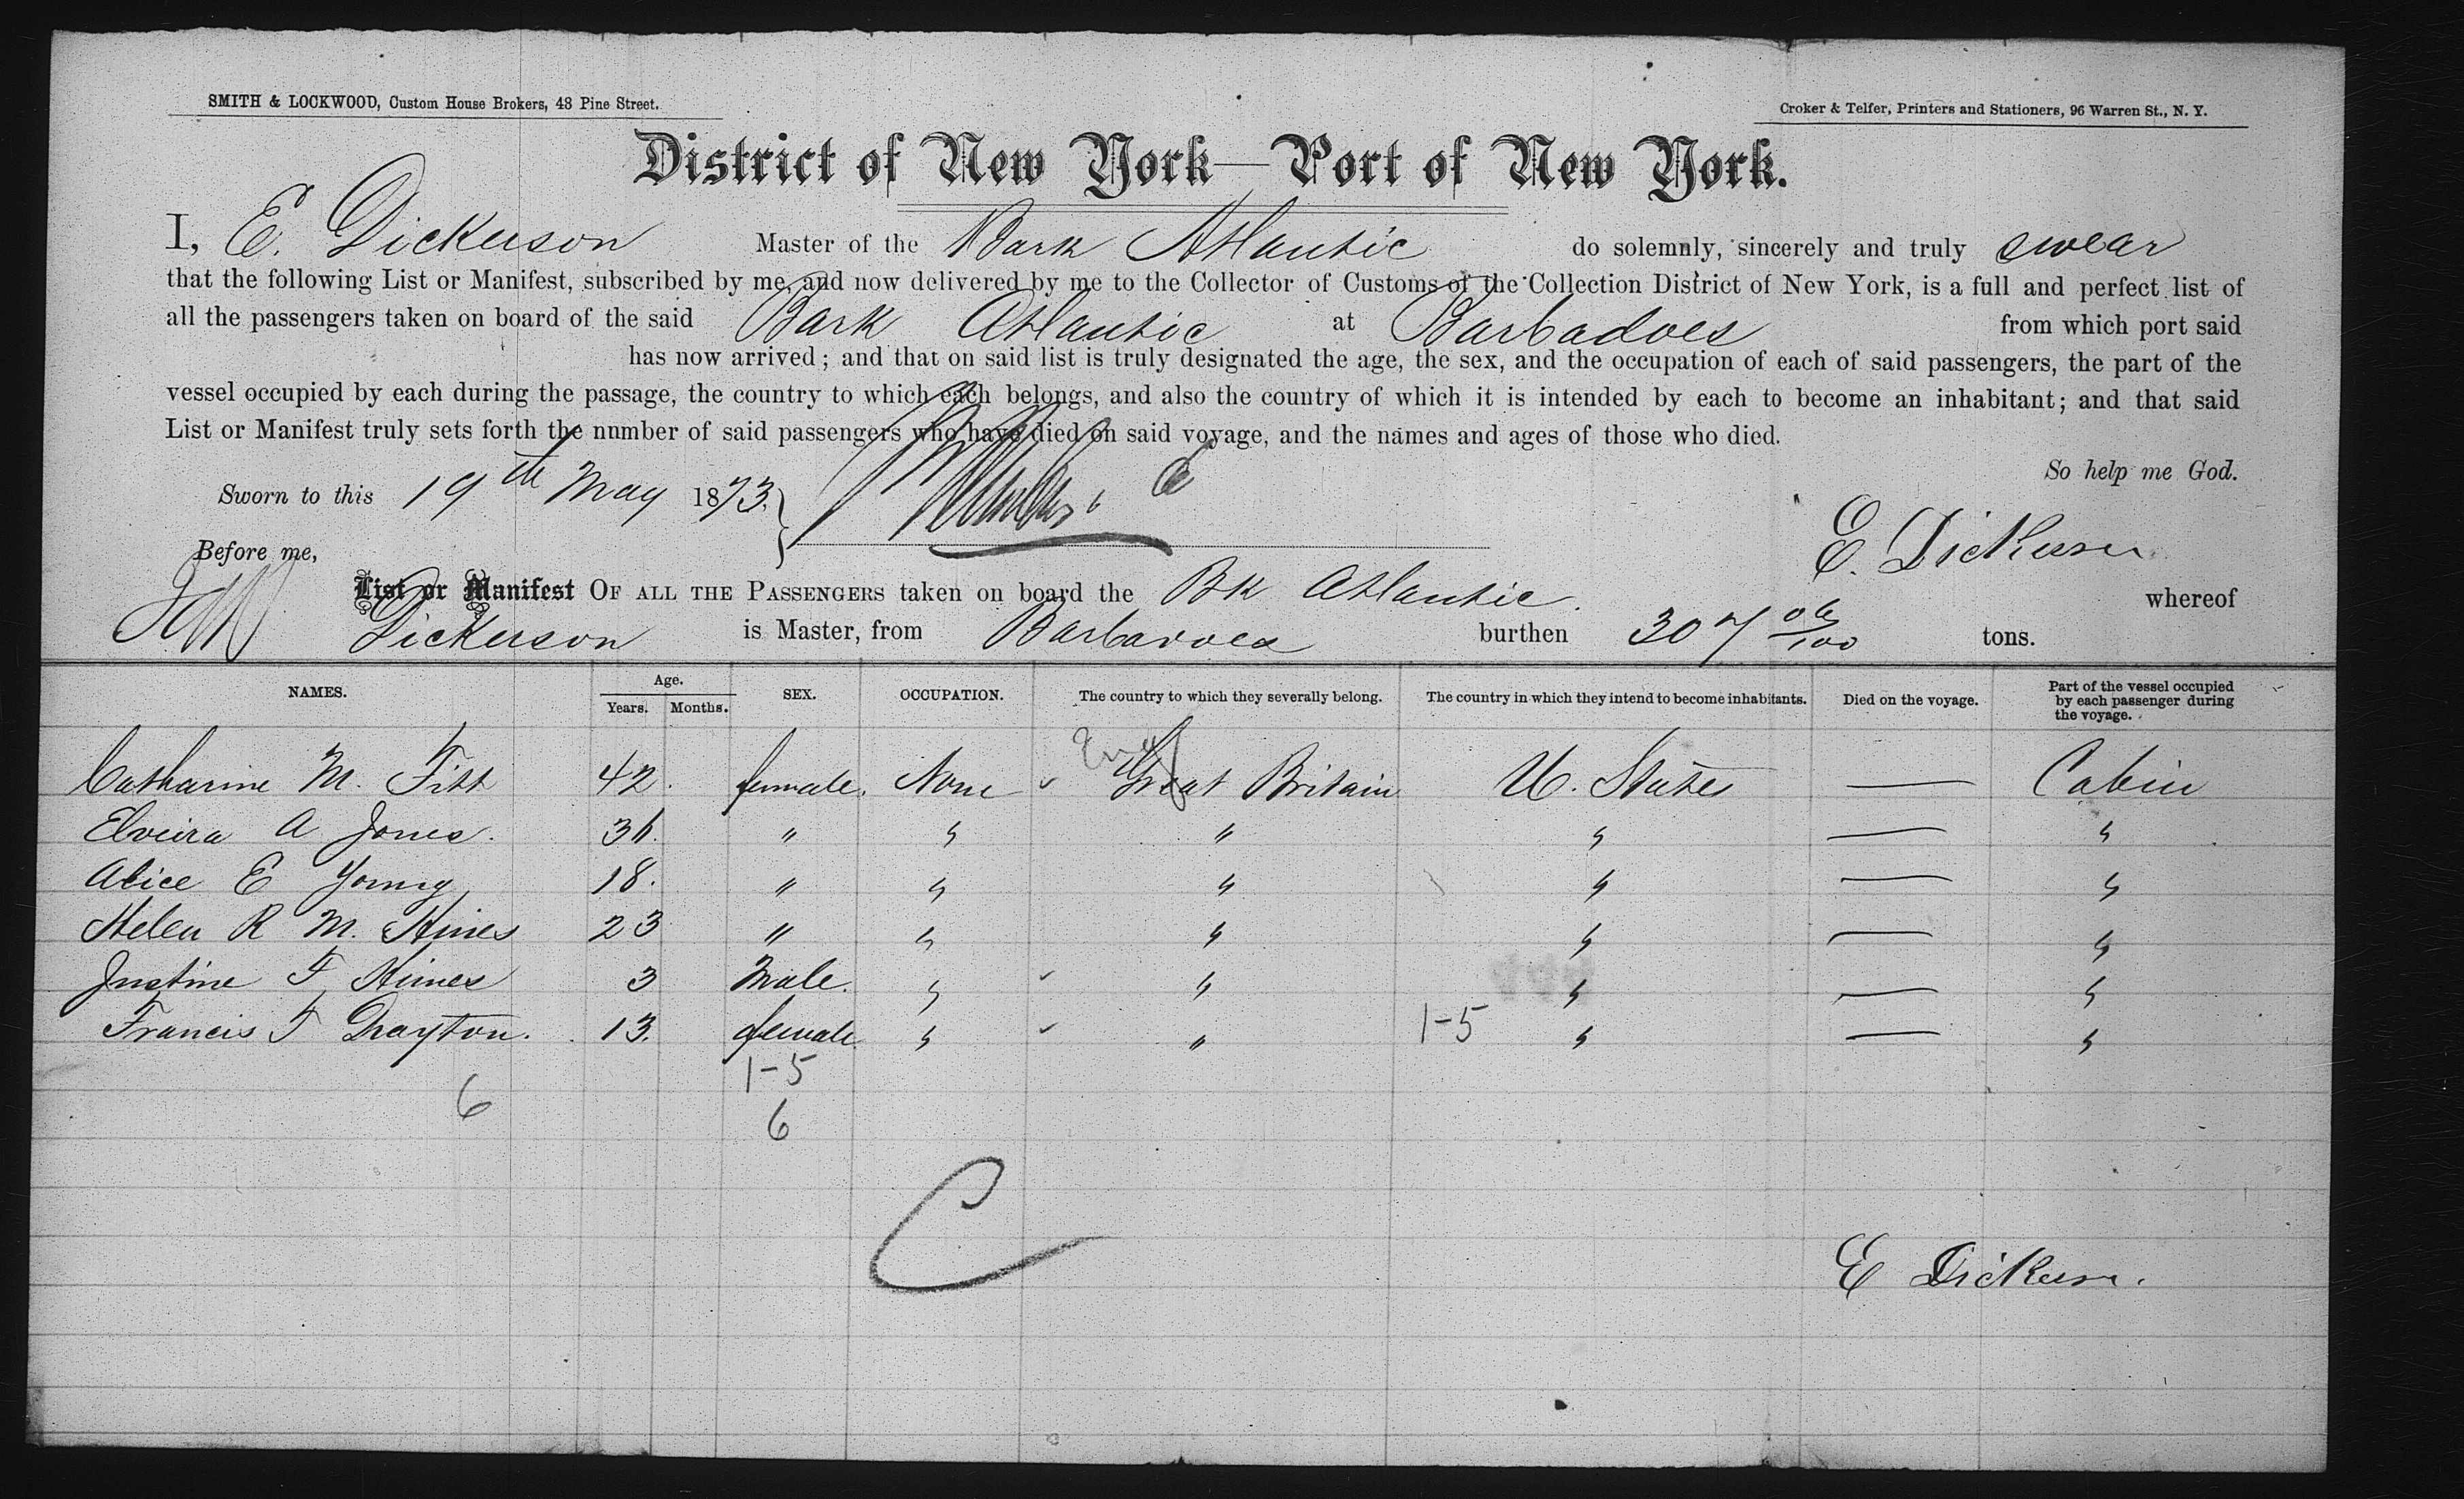 SMITH & LOCKWOOD, Custom House Brokers, 43 Pine Street.
Croker & Telfer, Printers and Stationers, 96 Warren St., N. Y.
District of New York—Port of New York.
I, E. Dickerson Master of the Bark Atlantic do solemnly, sincerely and truly swear
that the following List or Manifest, subscribed by me, and now delivered by me to the Collector of Customs of the Collection District of New York, is a full and perfect list of
all the passengers taken on board of the said Bark Atlantic at Barbadoes from which port said
has now arrived; and that on said list is truly designated the age, the sex, and the occupation of each of said passengers, the part of the
vessel occupied by each during the passage, the country to which each belongs, and also the country of which it is intended by each to become an inhabitant; and that said
List or Manifest truly sets forth the nnmber of said passengers who have died on said voyage, and the names and ages of those who died.
So help me God.
Sworn to this 19th May 1873.
E. Dickerson
Before me,
List or Manifest OF ALL THE PASSENGERS taken on board the Bk Atlantic. whereof
Dickerson is Master, from Barbadoes burthen 307 06/100 tons.
NAMES. Age. Years. Months. SEX. OCCUPATION. The country to which they severally belong. The country in which they intend to become inhabitants. Died on the voyage. Part of the vessel occupied by each passenger during the voyage.
Eng
Catharine M. Fitt 42. female. None ✓ Great Britain U. States — Cabin
Elveira A Jones. 36. " " " " — "
Alice E Young 18. " " " " — "
Helen R M. Hines 23 " " " " — "
Justine F Hines 3 Male. " ✓ " " — "
Francis F Drayton. 13. female. " ✓ " 1-5 " — "
1-5
6 6
C
E Dickerson.